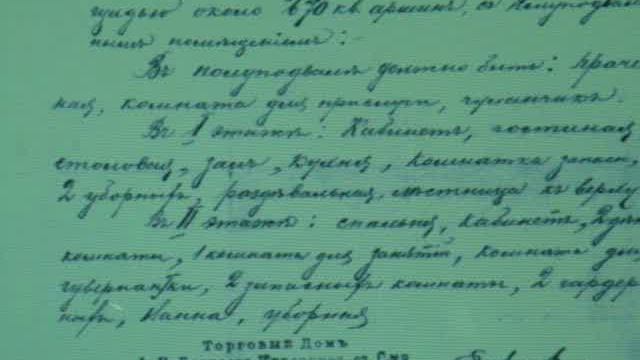 щадью около 670 кв. аршинъ, съ полуподваль
нымъ помѣщеніемъ: -
Въ полуподвалѣ должно быть: прачеш
ная, комната для прислуги, чуланчикъ.
Въ I этажѣ: Кабинетъ, гостиная
столовая, залъ, кухня, комнатка запасн
2 уборныхъ, раздѣвальная, лѣстница къ верху
Въ II этажѣ: спальня, кабинетъ, 2
комнаты, 1 комната для занятій, комната для
гувернантки, 2 запасныхъ комнаты, 2 гардер
ныхъ, Ванна, уборная
Торговый Домъ